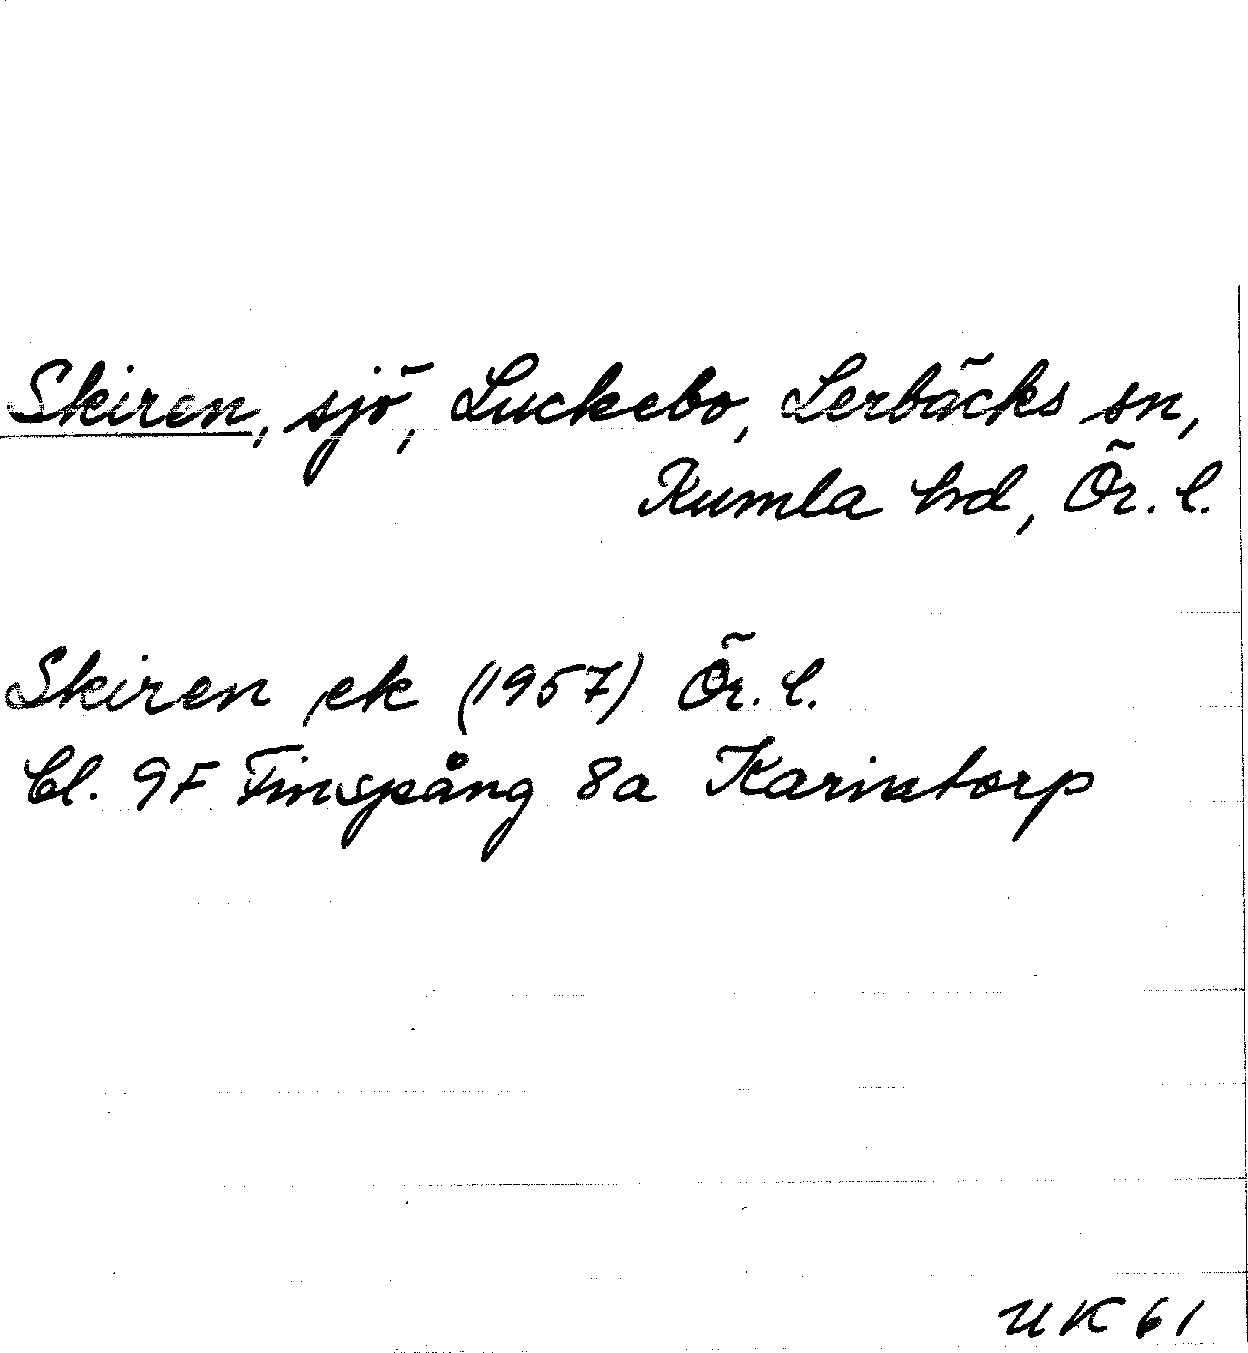 Skiren, sjö, Luckebo, Lerbäcks sn,
Kumla hd, Ör. l.
Skiren ek (1957) Ör. l.
bl. 9F Finspång 8a Karintorp
UK 61